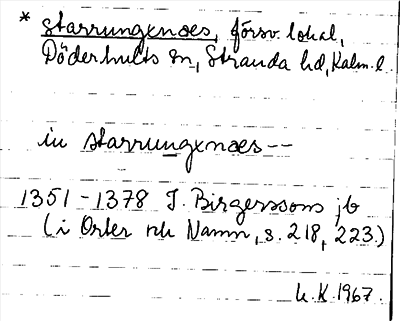 * starrungxnæs, försv. lokal,
Döderhults sn, Stranda hd, Kalm. l
in starrungxnæs --
1351-1378 J. Birgerssons jb
(i Orter och Namn, s. 218, 223.)
K.K. 1967.